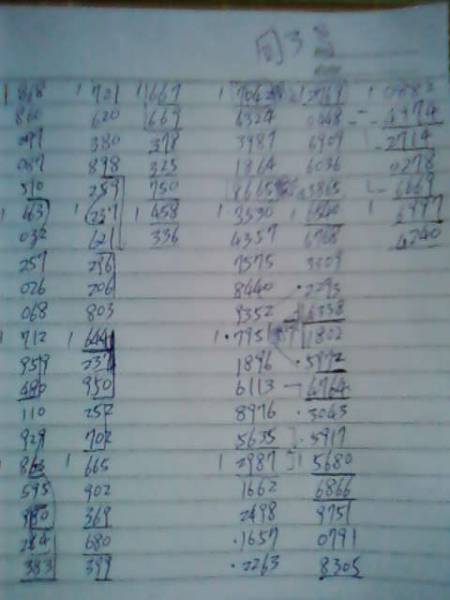 3
868 701 667 7062 2769 0882
860 620 669 6324 0448 4974
097 380 378 3987 6907 2714
087 898 325 1864 6036 0278
510 259 750 8665 5865 6669
463 237 458 3530 6560 6997
032 621 336 4357 6768 4240
257 296 7575 3309
026 206 8440 2295
068 803 9352 6338
712 644 7951 1802
959 237 1896 5972
480 950 6113 4764
110 252 8976 3043
929 702 5635 5917
863 665 2987 5680
595 902 1662 6866
980 369 2498 9751
264 680 1657 0791
383 399 2263 8305